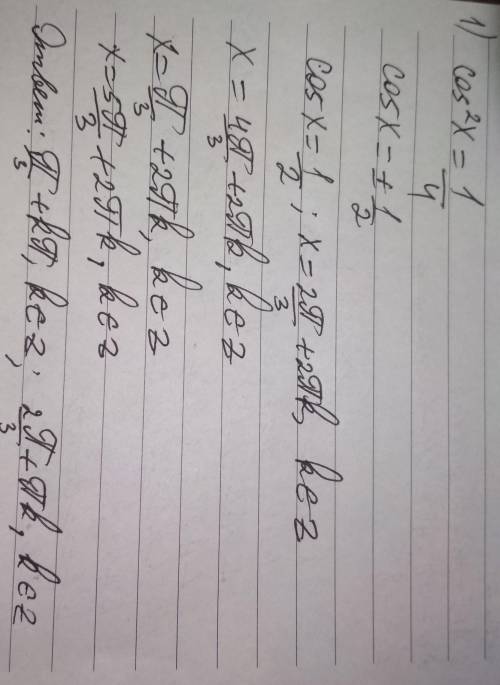 1) cos²x = 1/4
cos x = ± 1/2
cos x = 1/2 ; x = 2π/3 + 2πk, k ∈ z
x = 4π/3 + 2πk, k ∈ z
x = π/3 + 2πk, k ∈ z
x = 5π/3 + 2πk, k ∈ z
Ответ: π/3 + kπ, k ∈ z; 2π/3 + πk, k ∈ z